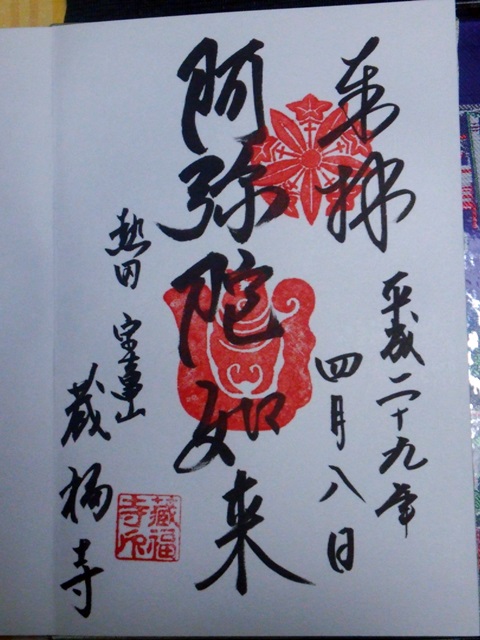 奉拝
平成二十九年
四月八日
阿弥陀如来
熱田 宝亀山
蔵福寺
蔵福
寺印